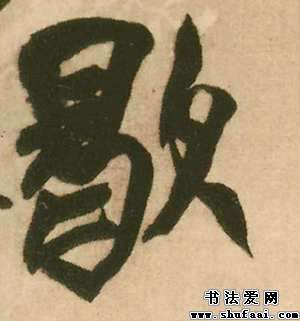 歇
书法爱网
www.shufaai.com